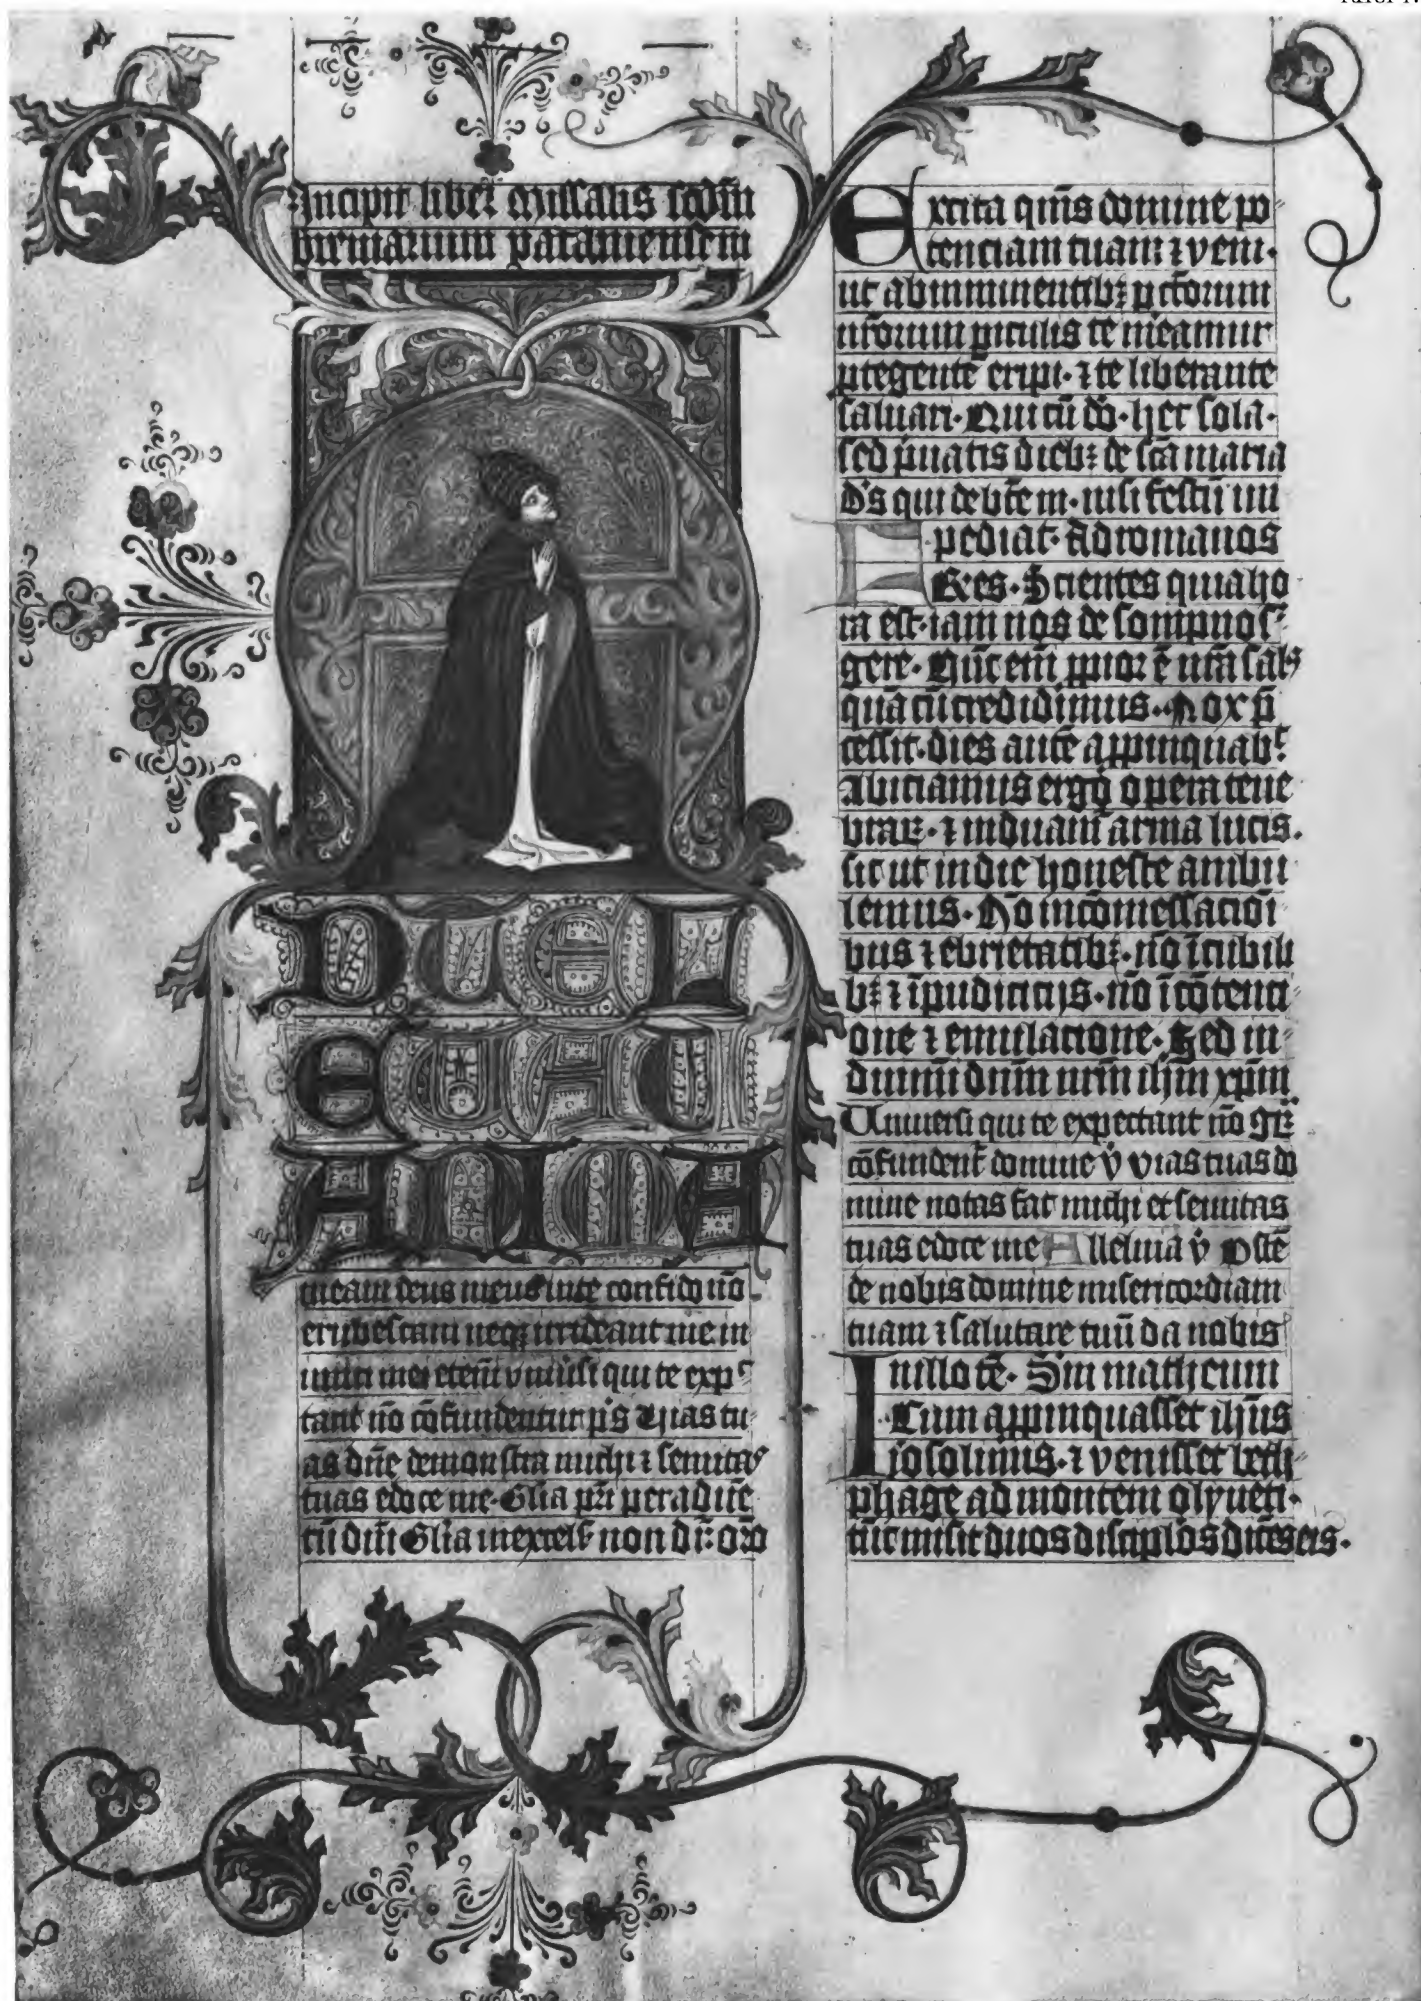 Incipit liber missalis scdm
breuiarium patauiensem
AD TE L
EUAUI
ANIMA
meam deus meus in te confido nō
erubescam neqꝫ irrideant me in
imici mei etem̄ vniūsi qui te expc
tant nō cōfundentur p̄s Uias tu
as dn̄e demonstra michi ⁊ semitas
tuas edoce me · Glia pr̄i per aduē
tū dn̄i Glia in excels̄ non dr̄ : orō
Excita qm̄s domine po
tenciam tuam ⁊ veni ·
ut ab imminentibꝫ pctorum
nr̄orum piculis te mēamur
ptegente eripi · ⁊ te liberante
saluari · Qui cū dō · hec sola ·
sed p̄uatis diebꝫ de sc̄a maria
Ds̄ qui de bt̄e m · nisi festū im
pediat · Ad romanos
Fres · Scientes quia ho
ra est iam nos de sompno s̄
gere · Nūc em̄ ppior ē nr̄a sal9
quā cū credidimus · Nox p̄
cessit · dies autē appinquab̄t
Abiciamus ergo opera tene
braꝝ · ⁊ induam̄ arma lucis ·
sic ut in die honeste ambu
lemus · Nō in cōmessacioī
bus ⁊ ebrietatibꝫ · nō ī cubili
bꝫ ⁊ īpudicicijs · nō ī cōtenci
one ⁊ emulacione · Sed in
duimi dn̄m nrm̄ ihm̄ xpm̄
Uniuersi qui te expectant nō gr̄
cōfundent̄ domine v̄ vias tuas do
mine notas fac michi et semitas
tuas edoce me Alleluia v̄ Ostē
de nobis domine misericordiam
tuam ⁊ salutare tuū da nobis
In illo tē · Scdm matheum
Cum appinquasset ihūs
iosolimis · ⁊ venisset beth
phage ad montem olyueti ·
tūc misit duos discip̄los dicēs eis ·